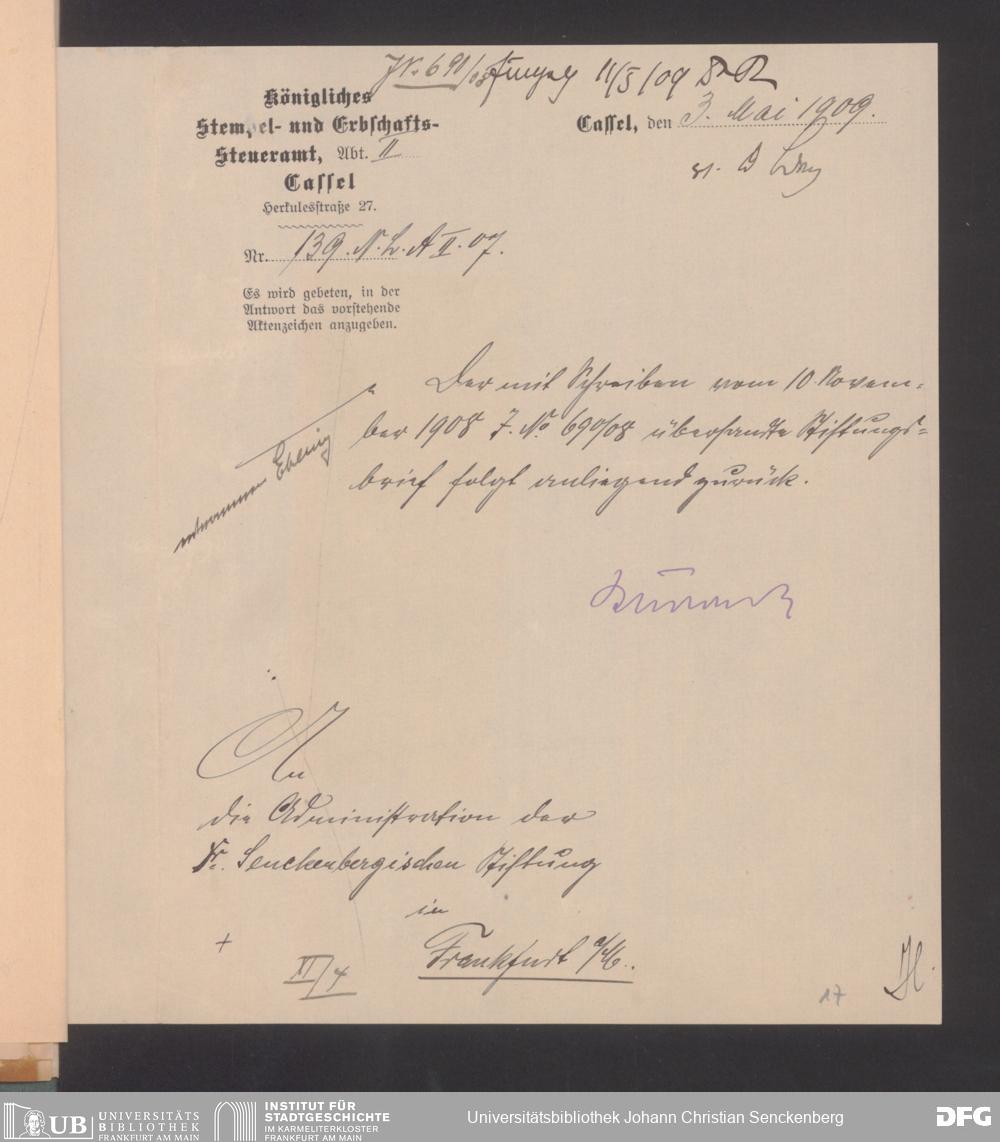 J.No. 691/08 11/5/09
Königliches
Stempel- und Erbschafts-
Steueramt, Abt. II
Cassel
Herkulesstraße 27.
Cassel, den 3. Mai 1909.
Nr. 139. N. L. A II. 07.
Es wird gebeten, in der
Antwort das vorstehende
Aktenzeichen anzugeben.
Der mit Schreiben vom 10. Novem-
ber 1908 J. No. 690/08 übersandte Stiftungs-
brief folgt anliegend zurück.
An
die Administration der
Dr. Senckenbergischen Stiftung
in
Frankfurt a/M.
II/4
17
UB UNIVERSITÄTS
BIBLIOTHEK
FRANKFURT AM MAIN
INSTITUT FÜR
STADTGESCHICHTE
IM KARMELITERKLOSTER
FRANKFURT AM MAIN
Universitätsbibliothek Johann Christian Senckenberg
DFG